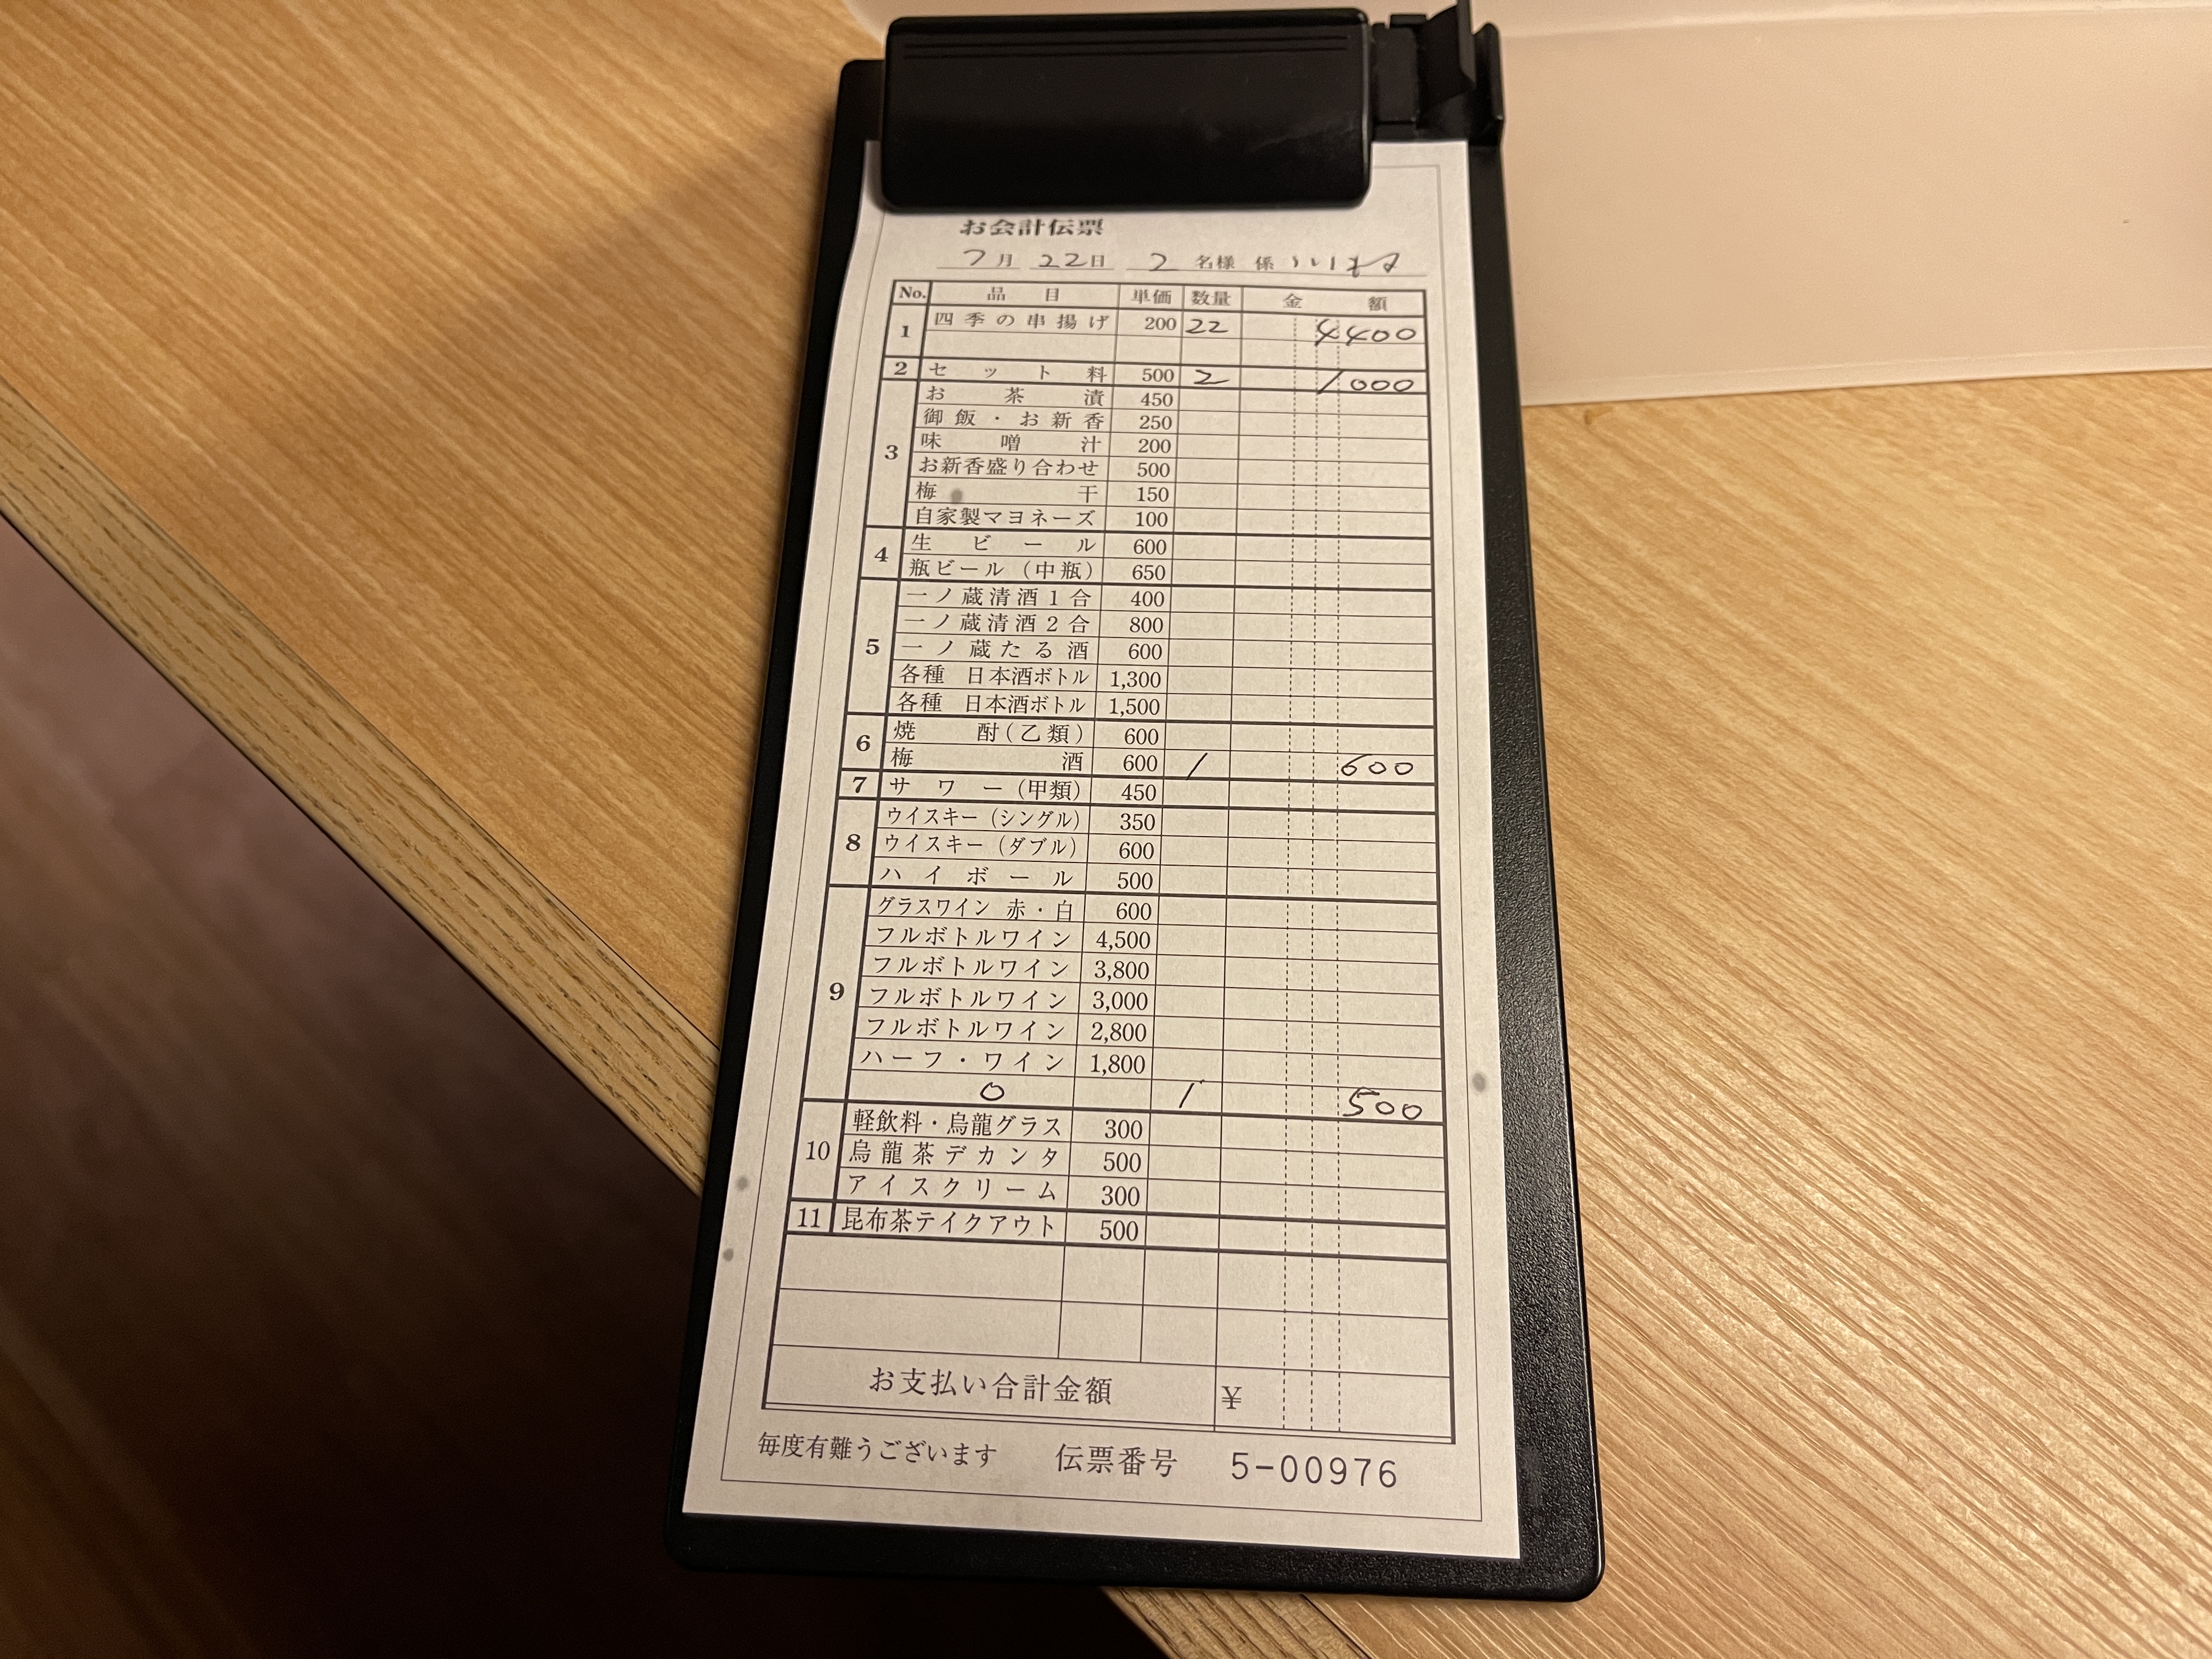 お会計伝票
7月 22日 2 名様 係
No. 品目 単価 数量 金額
1 四季の串揚げ 200 22 4400
2 セット料 500 2 1000
3 お茶漬 450
御飯・お新香 250
味噌汁 200
お新香盛り合わせ 500
梅干 150
自家製マヨネーズ 100
4 生ビール 600
瓶ビール（中瓶） 650
5 一ノ蔵清酒1合 400
一ノ蔵清酒2合 800
一ノ蔵たる酒 600
各種 日本酒ボトル 1,300
各種 日本酒ボトル 1,500
6 焼酎(乙類) 600
梅酒 600 1 600
7 サワー(甲類) 450
8 ウイスキー（シングル） 350
ウイスキー（ダブル） 600
ハイボール 500
9 グラスワイン 赤・白 600
フルボトルワイン 4,500
フルボトルワイン 3,800
フルボトルワイン 3,000
フルボトルワイン 2,800
ハーフ・ワイン 1,800
0 1 500
10 軽飲料・烏龍グラス 300
烏龍茶デカンタ 500
アイスクリーム 300
11 昆布茶テイクアウト 500
お支払い合計金額 ¥
毎度有難うございます 伝票番号 5-00976